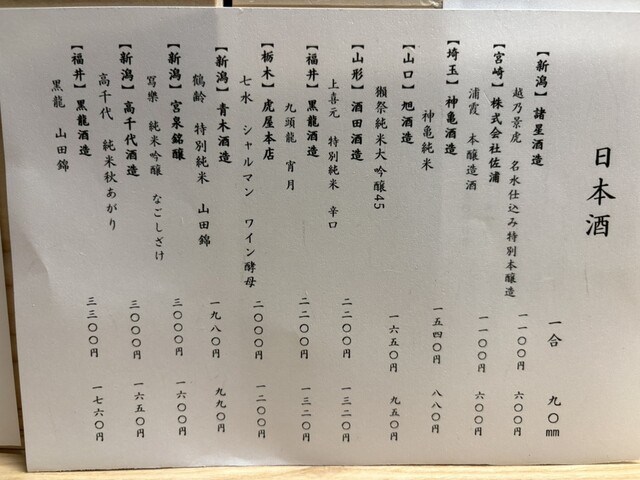 日本酒
一合 九〇㎜
【新潟】諸星酒造
越乃景虎 名水仕込み特別本醸造 一一〇〇円 六〇〇円
【宮崎】株式会社佐浦
浦霞 本醸造酒 一一〇〇円 六〇〇円
【埼玉】神亀酒造
神亀純米 一五四〇円 八八〇円
【山口】旭酒造
獺祭純米大吟醸45 一六五〇円 九五〇円
【山形】酒田酒造
上喜元 特別純米 辛口 二二〇〇円 一三二〇円
【福井】黒龍酒造
九頭龍 宵月 二二〇〇円 一三二〇円
【栃木】虎屋本店
七水 シャルマン ワイン酵母 二〇〇〇円 一二〇〇円
【新潟】青木酒造
鶴齢 特別純米 山田錦 一九八〇円 九九〇円
【新潟】宮泉銘醸
寫樂 純米吟醸 なごしざけ 三〇〇〇円 一六〇〇円
【新潟】高千代酒造
高千代 純米秋あがり 三〇〇〇円 一六五〇円
【福井】黒龍酒造
黒龍 山田錦 三三〇〇円 一七六〇円